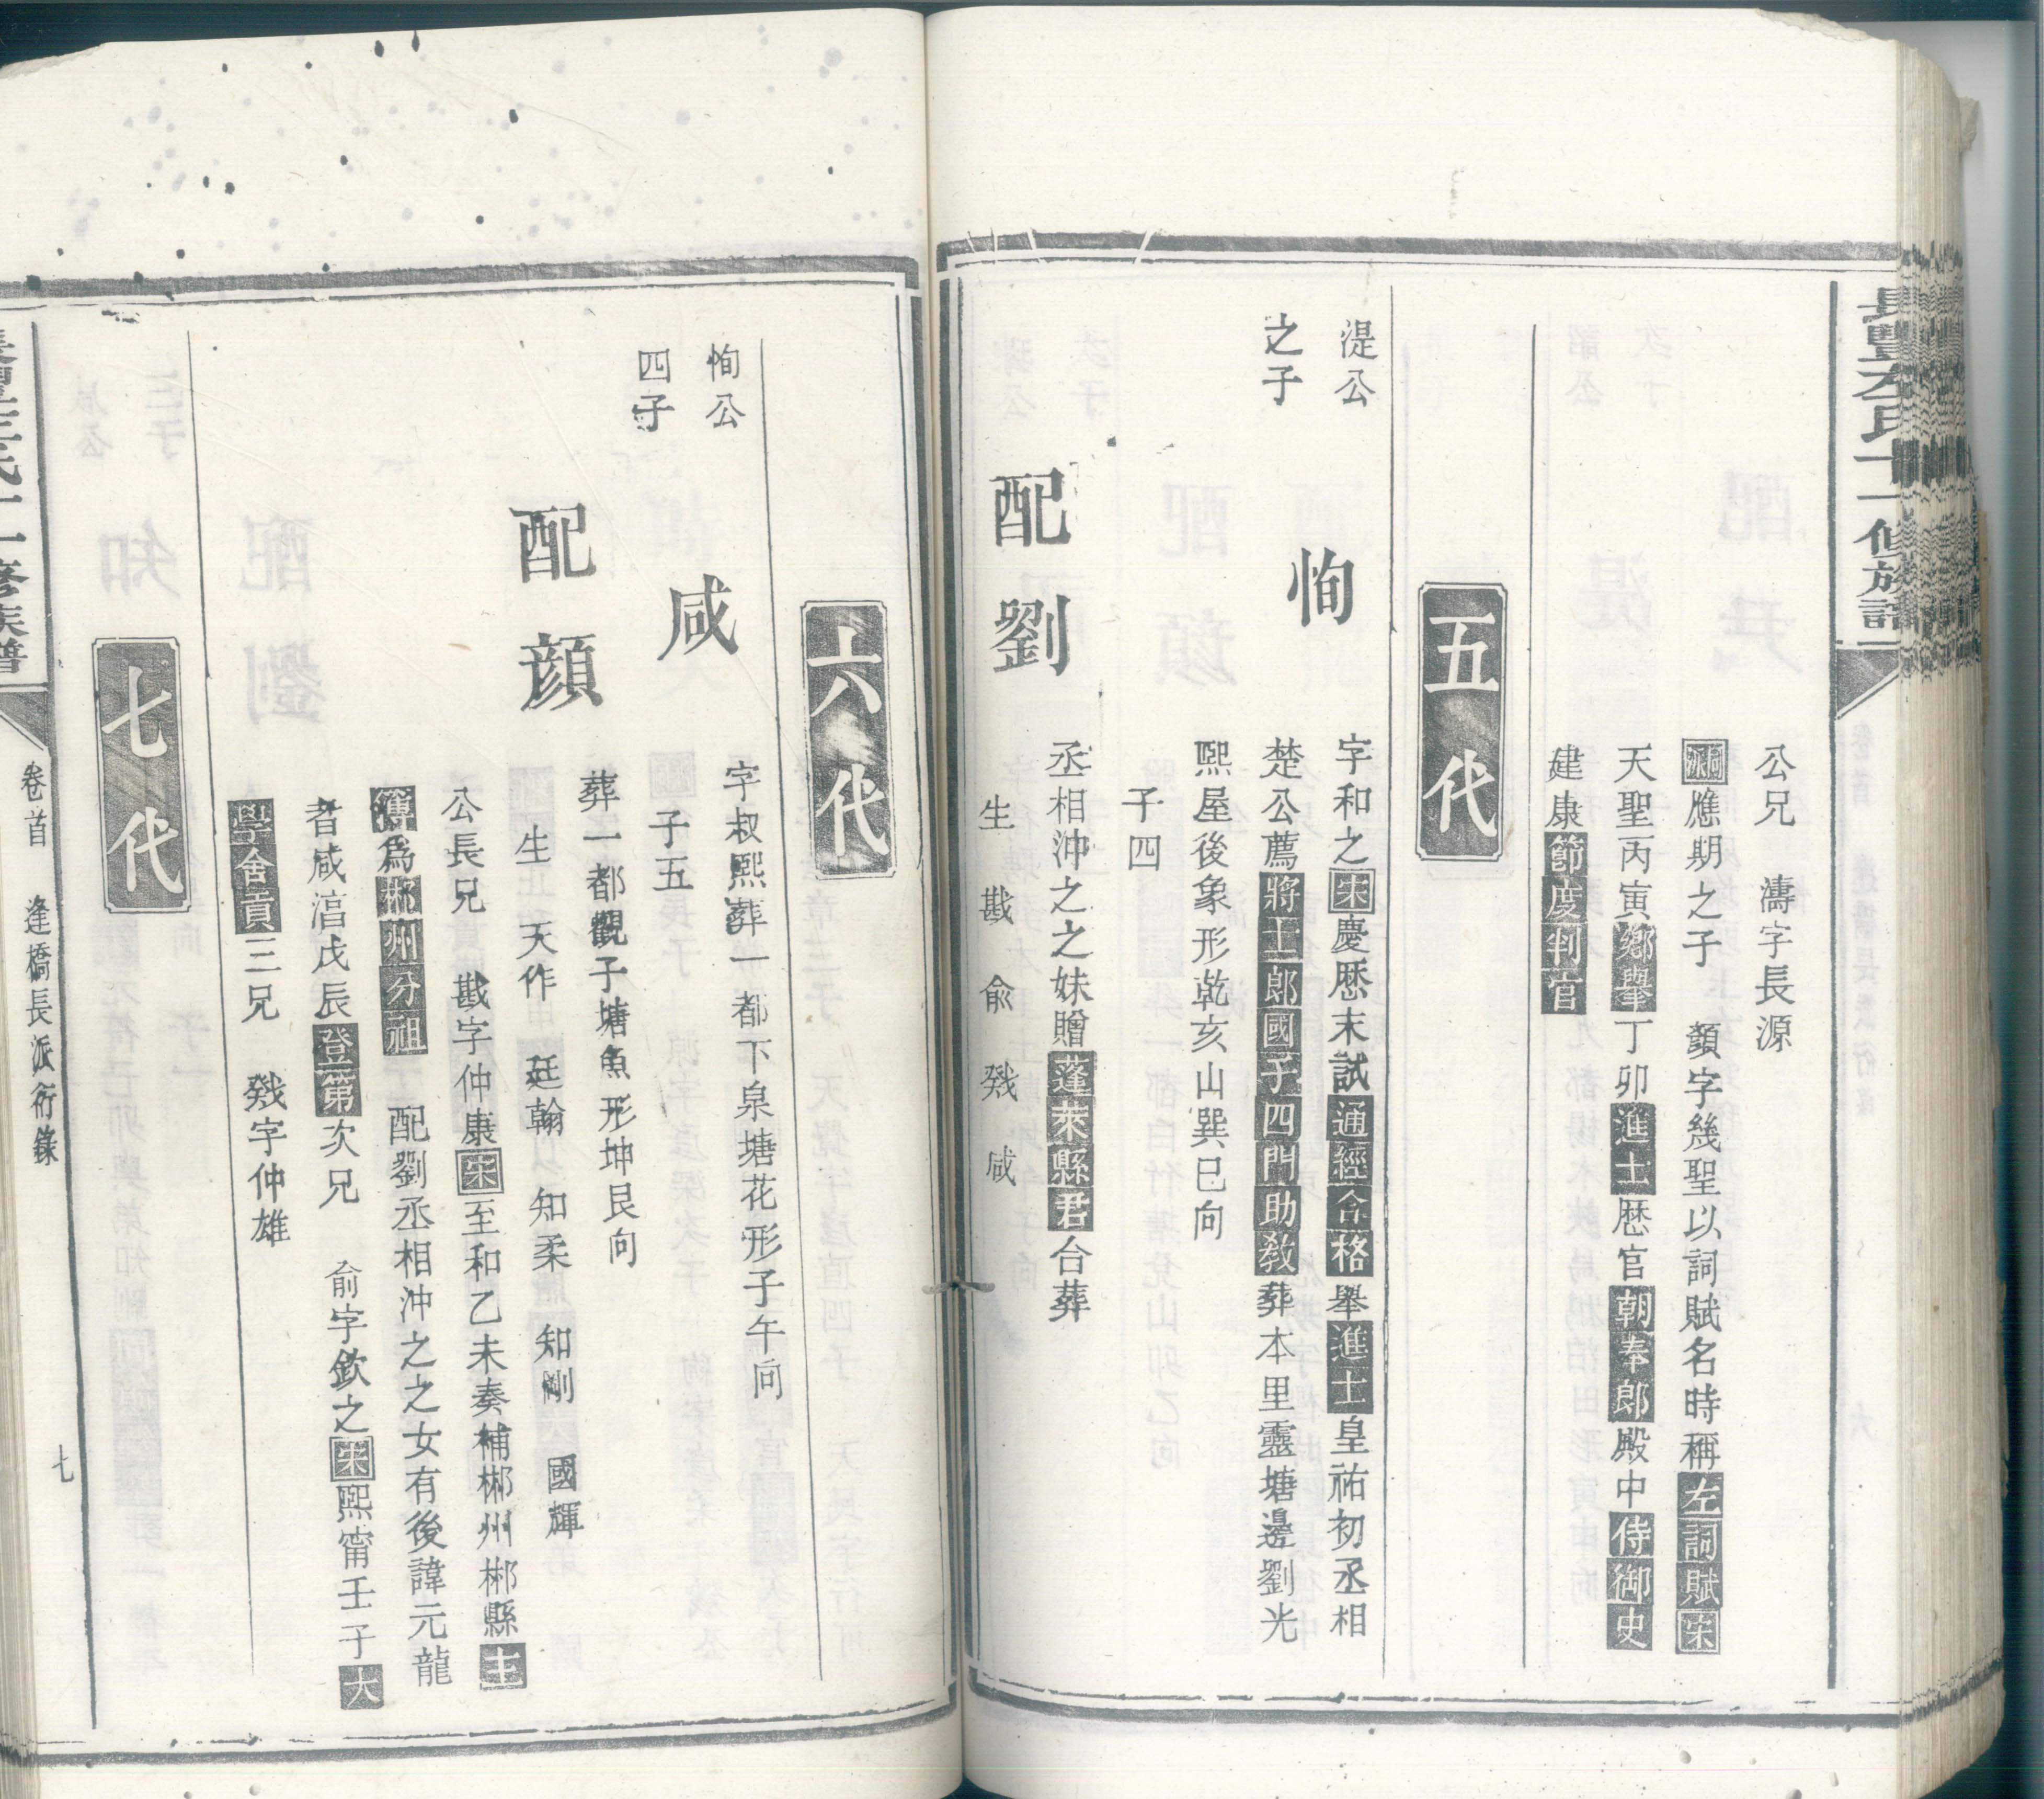 長豐左氏十一修族譜
公兄　濤字長源
應期之子　顏字幾聖以詞賦名時稱左詞賦宋
天聖丙寅鄉舉丁卯進士歷官朝奉郎殿中侍御史
建康節度判官
五代
湜公
之子
恂
字和之宋慶歷末試通經合格舉進士皇祐初丞相
楚公薦將士郎國子四門助教葬本里靈塘邊劉光
熙屋後象形乾亥山巽巳向
子四
配劉
丞相沖之之妹贈蓬萊縣君合葬
生　戡　俞　戣　咸
六代
恂公
四子
咸
字叔熙葬一都下泉塘花形子午向
子五
配顏
葬一都觀子塘魚形坤艮向
生　天作　廷翰　知柔　知剛　國輝
公長兄　戡字仲康宋至和乙未奏補郴州郴縣主
簿為郴州分祖　配劉丞相沖之之女有後諱元龍
者咸淳戊辰登第次兄　俞字欽之宋熙甯壬子大
學舍貢三兄　戣字仲雄
七代
長豐左氏十一修族譜
卷首　逢橋長派衍錄
七